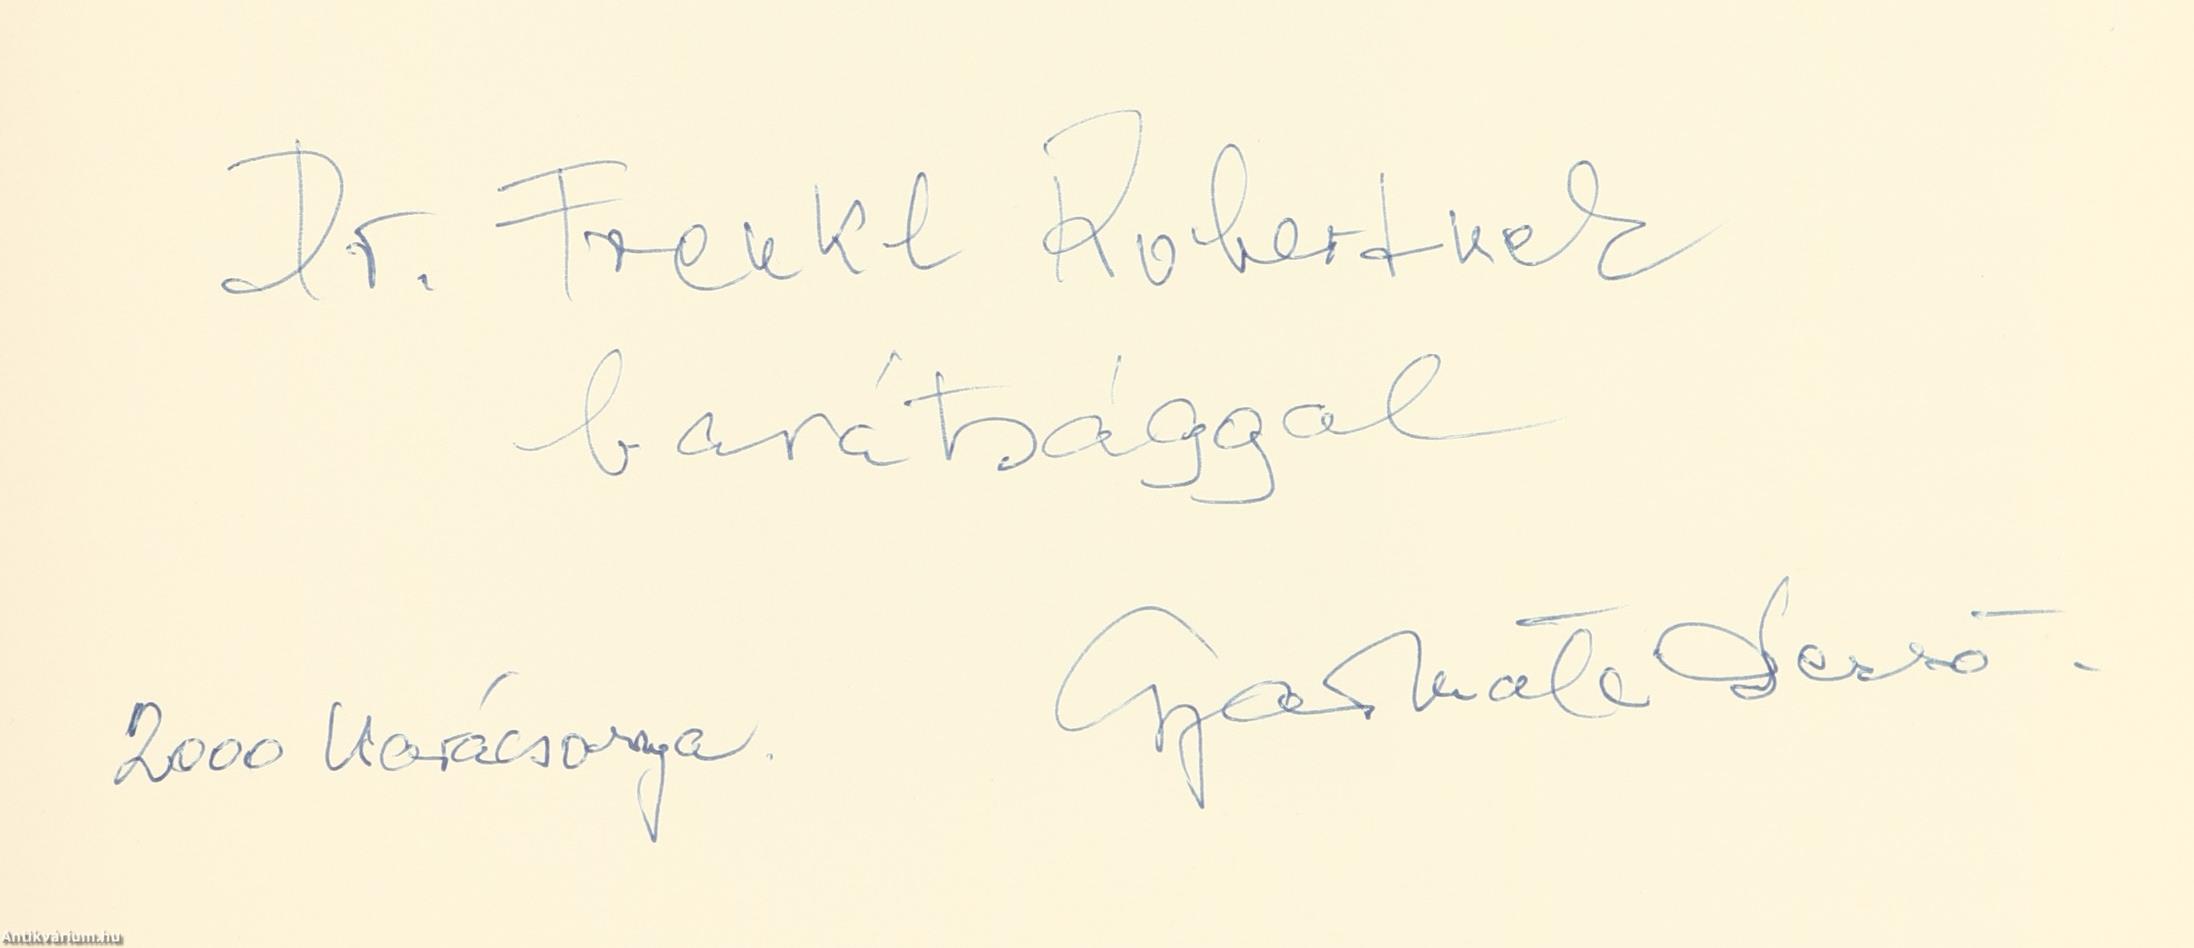 Dr. Frenkl Robertnek
barátsággal
Gyarmati Dezső.
2000 Karácsonya.
Antikvárium.hu